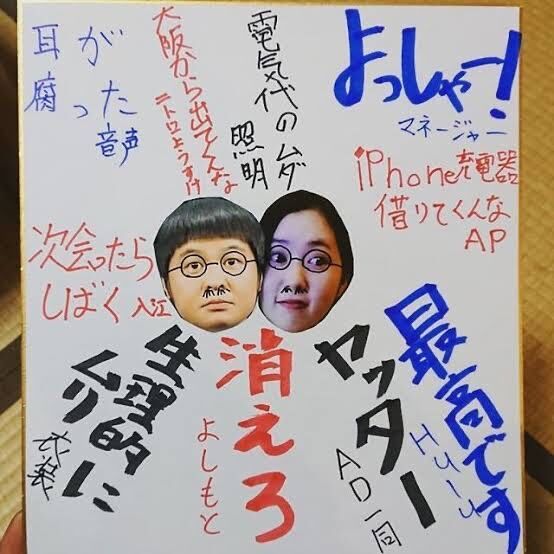 よっしゃー!
マネージャー
電気代のムダ
照明
大阪から出てくんな
ニトロようすけ
耳が
腐った
音声
iPhone充電器
借りてくんな
AP
次会ったら
しばく 入江
最高です
Hulu
ヤッター
AD一同
消えろ
よしもと
生理的に
ムリ